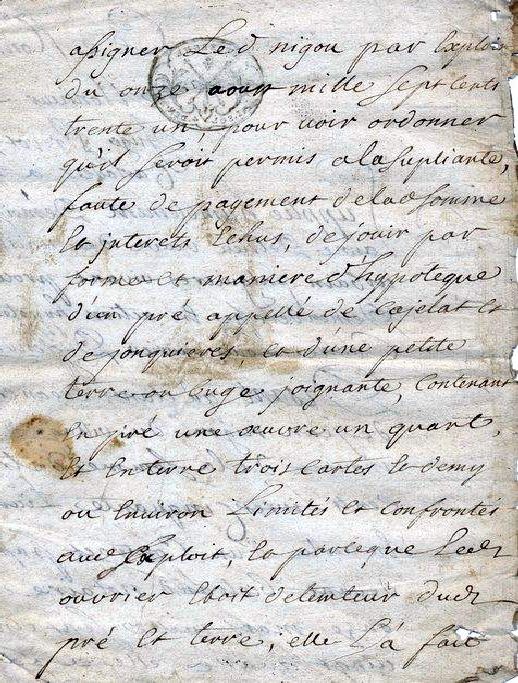 assigner Le d nigou par Exploit
du onze aoust mille Sept Cents
trente un pour voir ordonner
qu'il Seroit permis a la Supliante,
faute de payement de lad somme
Et interets Echus, de jouir par
forme et maniere d'hypoteque
d'un pré appellé de Cajelat et
de jonquieres, et d'une petite
terre ou buge joignante, Contenant
En pré une œuvre un quart,
Et En terre trois Cartes Et demy
ou Environ Limités Et Confrontés
aud Exploit, Et parceque Ledt
ouvrier Etoit detenteur dudt
pré Et terre, elle L'a fait